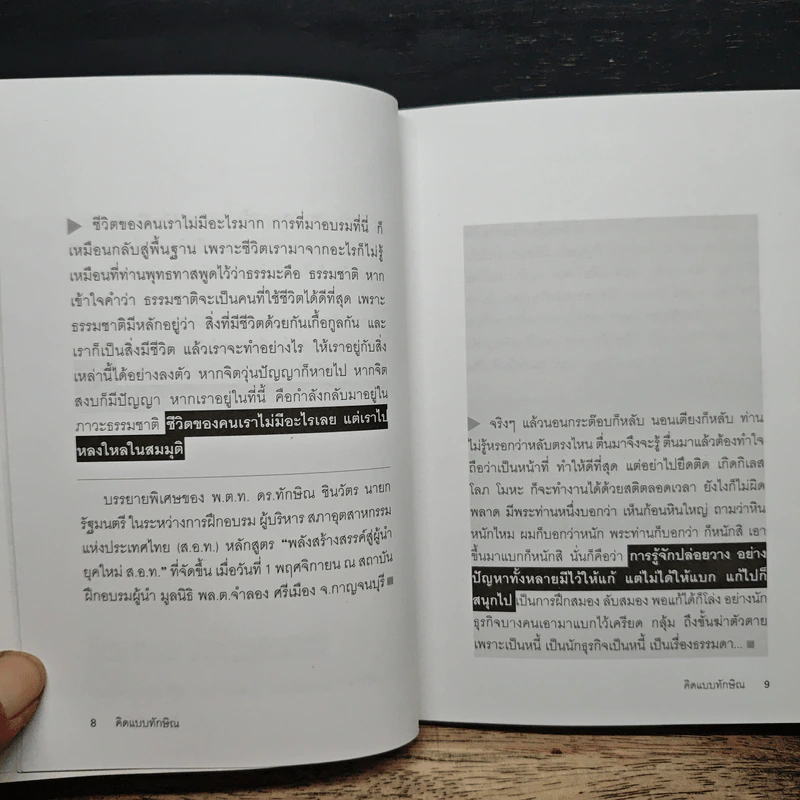 ▶ ชีวิตของคนเราไม่มีอะไรมาก การที่มาอบรมที่นี่ ก็
เหมือนกลับสู่พื้นฐาน เพราะชีวิตเรามาจากอะไรก็ไม่รู้
เหมือนที่ท่านพุทธทาสพูดไว้ว่าธรรมะคือ ธรรมชาติ หาก
เข้าใจคำว่า ธรรมชาติจะเป็นคนที่ใช้ชีวิตได้ดีที่สุด เพราะ
ธรรมชาติมีหลักอยู่ว่า สิ่งที่มีชีวิตด้วยกันเกื้อกูลกัน และ
เราก็เป็นสิ่งมีชีวิต แล้วเราจะทำอย่างไร ให้เราอยู่กับสิ่ง
เหล่านี้ได้อย่างลงตัว หากจิตวุ่นปัญญาก็หายไป หากจิต
สงบก็มีปัญญา หากเราอยู่ในที่นี้ คือกำลังกลับมาอยู่ใน
ภาวะธรรมชาติ ชีวิตของคนเราไม่มีอะไรเลย แต่เราไป
หลงใหลในสมมุติ
บรรยายพิเศษของ พ.ต.ท. ดร.ทักษิณ ชินวัตร นายก
รัฐมนตรี ในระหว่างการฝึกอบรม ผู้บริหาร สภาอุตสาหกรรม
แห่งประเทศไทย (ส.อ.ท.) หลักสูตร "พลังสร้างสรรค์สู่ผู้นำ
ยุคใหม่ ส.อ.ท." ที่จัดขึ้น เมื่อวันที่ 1 พฤศจิกายน ณ สถาบัน
ฝึกอบรมผู้นำ มูลนิธิ พล.ต.จำลอง ศรีเมือง จ.กาญจนบุรี ■
8 คิดแบบทักษิณ
▶ จริงๆ แล้วนอนกระต๊อบก็หลับ นอนเตียงก็หลับ ท่าน
ไม่รู้หรอกว่าหลับตรงไหน ตื่นมาจึงจะรู้ ตื่นมาแล้วต้องทำใจ
ถือว่าเป็นหน้าที่ ทำให้ดีที่สุด แต่อย่าไปยึดติด เกิดกิเลส
โลภ โมหะ ก็จะทำงานได้ด้วยสติตลอดเวลา ยังไงก็ไม่ผิด
พลาด มีพระท่านหนึ่งบอกว่า เห็นก้อนหินใหญ่ ถามว่าหิน
หนักไหม ผมก็บอกว่าหนัก พระท่านก็บอกว่า ก็หนักสิ เอา
ขึ้นมาแบกก็หนักสิ นั่นก็คือว่า การรู้จักปล่อยวาง อย่าง
ปัญหาทั้งหลายมีไว้ให้แก้ แต่ไม่ได้ให้แบก แก้ไปก็
สนุกไป เป็นการฝึกสมอง ลับสมอง พอแก้ได้ก็โล่ง อย่างนัก
ธุรกิจบางคนเอามาแบกไว้เครียด กลุ้ม ถึงขั้นฆ่าตัวตาย
เพราะเป็นหนี้ เป็นนักธุรกิจเป็นหนี้ เป็นเรื่องธรรมดา... ■
คิดแบบทักษิณ 9